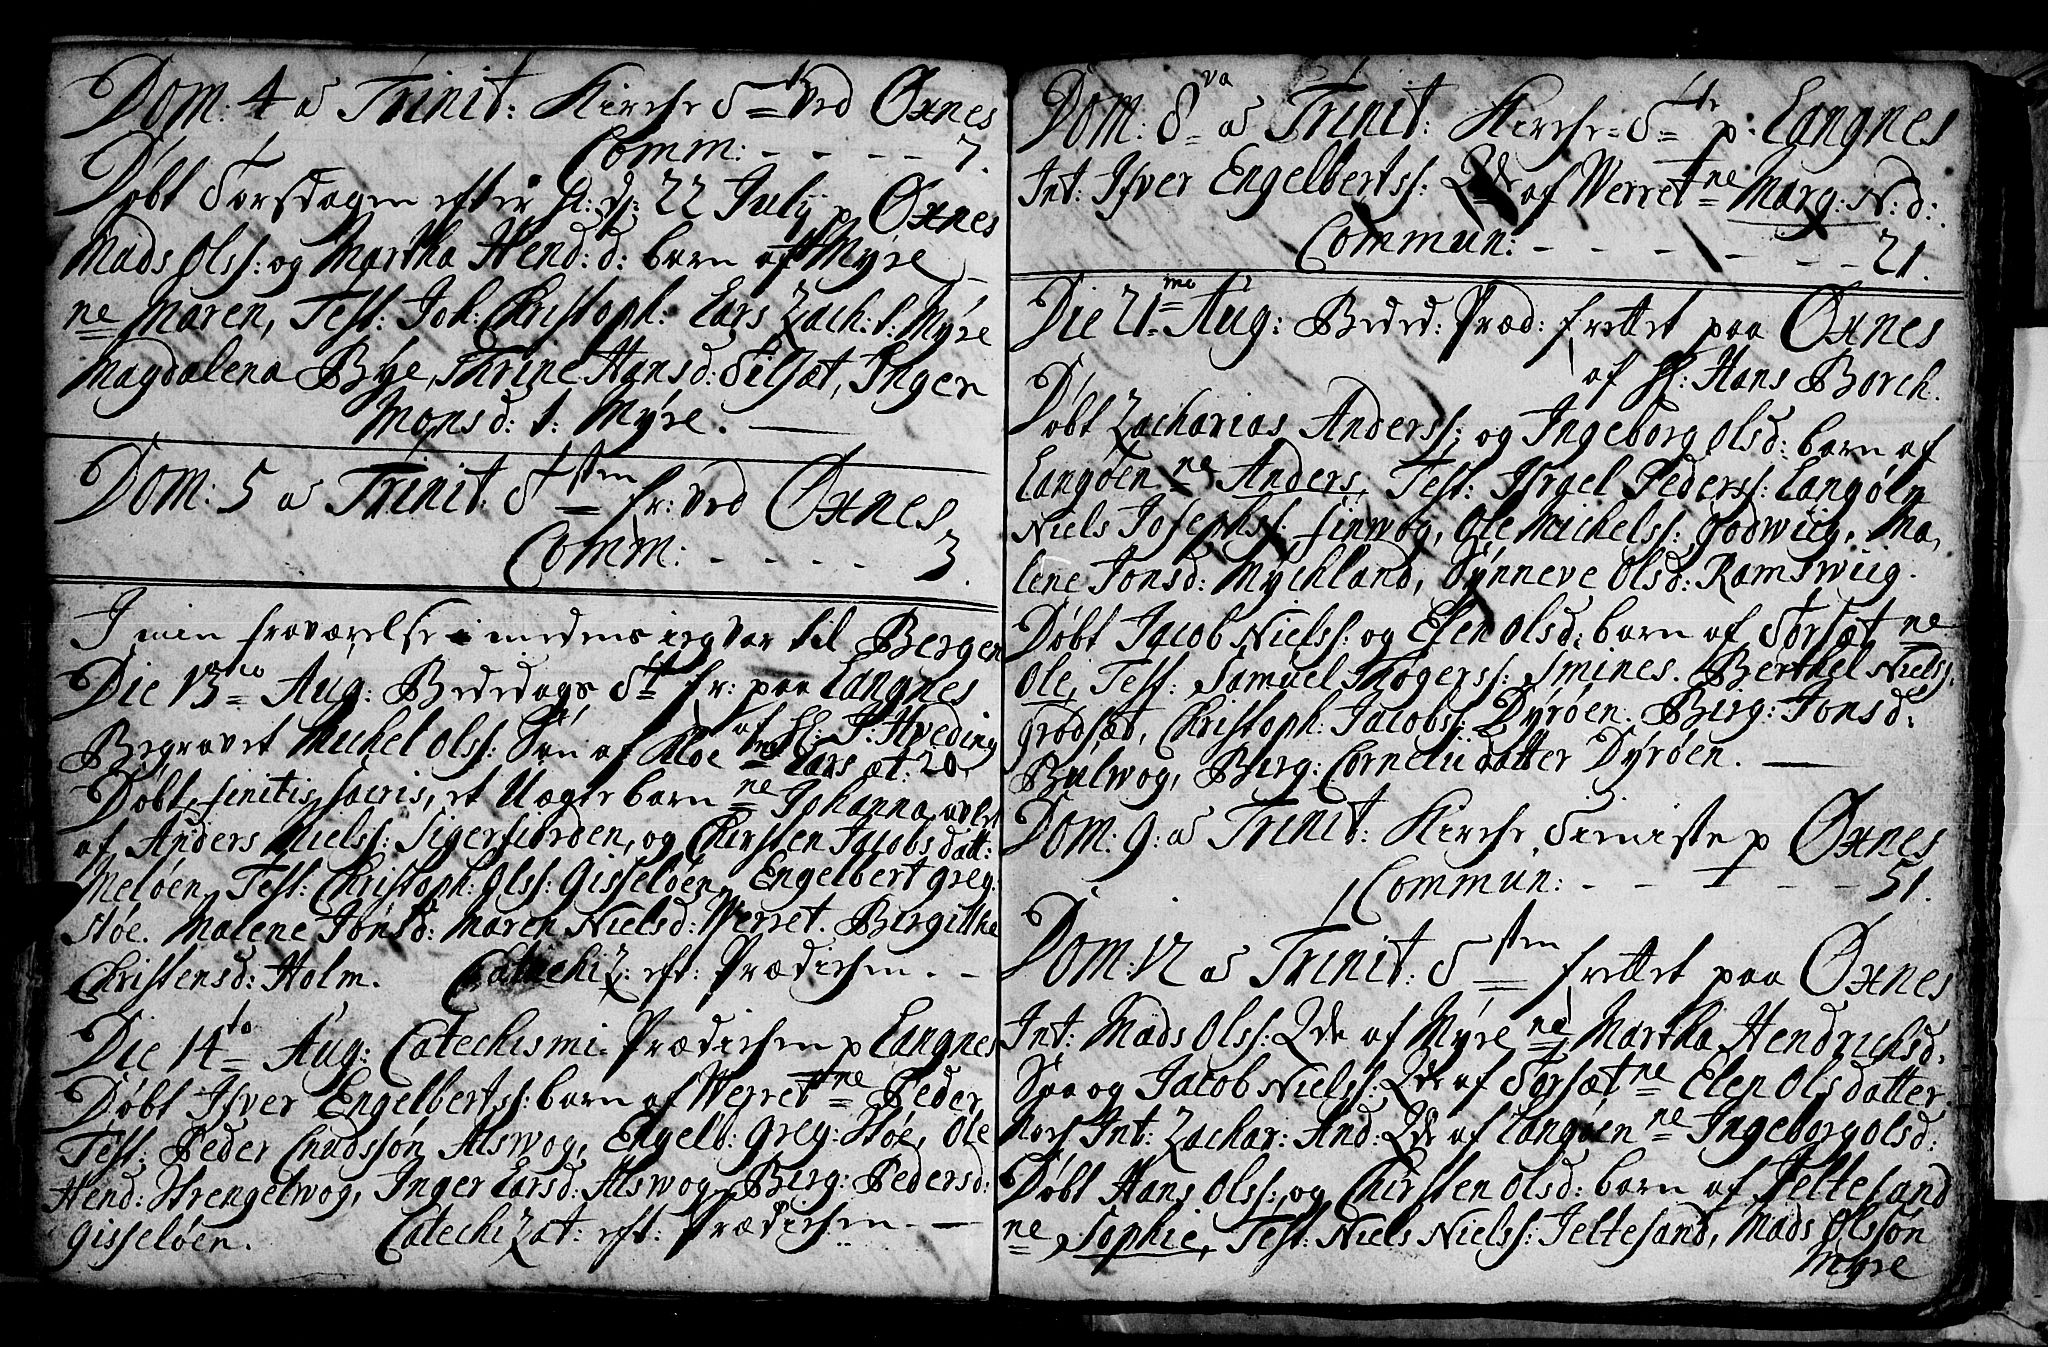 Dom: 4 à Trinit: Kirche S=t ved Øxnes
Comm: - - - - 7.
Døbt Torsdagen efter d: 22 July p Øxnes
Mads Olss: og Martha Hend: d: barn af Myre
ne Maren, Test: Joh: Christoph: Lars Zach: s: Myre
Magdalena Bye, Thrine Hansd: Tilsæt, Inger
Monsd: s: Myre.
Dom: 5 à Trinit: Ststen fr: ved Øxnes
Comm: - - - - 3.
I min fraværelse imedens ieg var til Bergen
Die 13no Aug: Bededags St fr: paa Langnes
af H: J: Hveding
Begravet Michel Olss: Søn af Kloe ne Lars æt: 20.
Døbt, finitis sacris, et Uægte barn ne Johanna, avlet
af Anders Nielss: Sigerfiorden, og Chirsten Jacobs datt:
Meløen, Test: Christoph: Olss: Gisseløen, Engelbert Greg:
Støe. Malene Jonsd: Maren Nielsd: Werret. Birgitthe
Christensd: Holm. Catechiz: eft: Prædichen. -
Die 14to Aug: Catechismi Prædichen p Langnes
Døbt Isver Engelbertss: barn af Werret ne Peder
Test: Peder Cnudssøn Alswog, Engelb: Greg: Støe, Ole
Hend: Strengelwog, Inger Larsd: Alswog, Birg: Pedersd:
Gisseløen. Catechizat: eft: Prædichen - -
Dom: 8va à Trinit: Kirche S=te p. Langnes
Int: Isver Engelbertss: Qde af Werret ne Marg: N: d:
Commun: - - - - - - 21.
Die 21mo Aug: Beded: Præd: frettet paa Øxnes
af H: Hans Borch.
Døbt Zacharias Anderss: og Ingeborg Olsd: barn af
Langøen ne Anders, Test: Israel Pederss: Langøen
Niels Josephss: Finwog, Ole Michelss: Godwiig, Ma,
lene Jonsd: Myckland, Synneve Olsd: Ramswiig.
Døbt Jacob Nielss: og Elen Olsd: barn af Sorsæt ne
Ole, Test: Samuel Thogerss: Smines. Berthel Nielss,
Grodsæt, Christoph: Jacobss: Dyrøen. Birg: Jonsd:
Bulwog, Birg: Cornelii datter Dyrøen.
Dom: 9: à Trinit: Kirche Tieniste p Øxnes
Commun: - - - - - 51.
Dom: 12 à Trinit: Ssten frettet paa Øxnes
Int: Mads Olss: Qde af Myre ne Martha Hendrichsd.
Saa og Jacob Nielss: Qde af Sorsæt ne Elen Olsdatter
Nors Int: Zachar: And: Qde af Langøen ne Ingeborg Olsd:
Døbt Hans Olss: og Chirsten Olsd: barn af Jeltesand
ne Sophie, Test: Niels Nielss: Jeltesand, Mads Olssøn
Myre